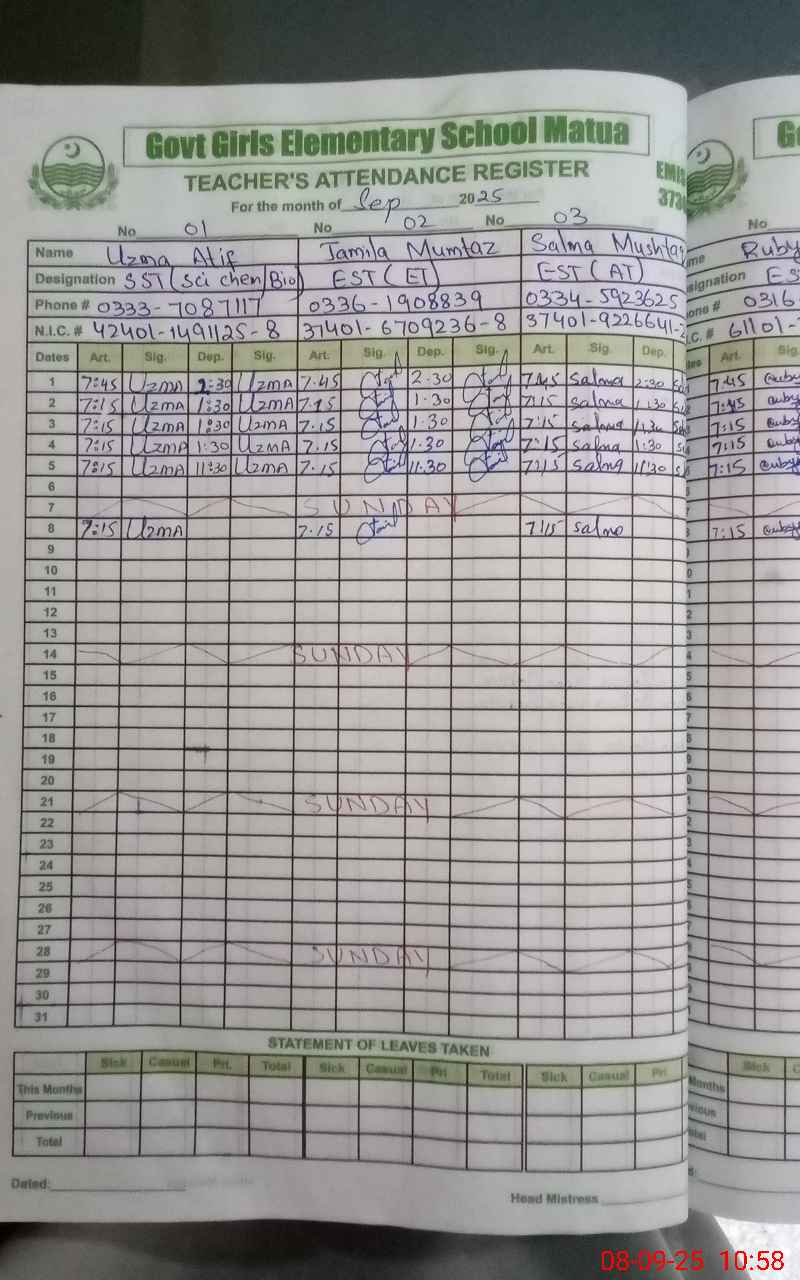 Govt Girls Elementary School Matua
TEACHER'S ATTENDANCE REGISTER
For the month of Sep 2025
No 01 No 02 No 03 No
Name Uzma Atif Jamila Mumtaz Salma Mushtaq Ruby
Designation SST (Sci chem/Bio) EST (ET) EST (AT)
Phone # 0333-7087117 0336-1908839 0334-5923625 0316
N.I.C. # 42401-1491125-8 37401-6709236-8 37401-9226641-2 61101-
Dates Art. Sig. Dep. Sig. Art. Sig. Dep. Sig. Art. Sig. Dep. Art. Sig.
1 7:45 Uzma 2:30 Uzma 7.45 2.30 7:45 Salma 2:30 7:45
2 7:15 Uzma 1:30 Uzma 7.15 1.30 7:15 Salma 1:30
3 7:15 Uzma 1:30 Uzma 7.15 1.30 7:15 Salma 1:30 7:15
4 7:15 Uzma 1:30 Uzma 7.15 1.30 7:15 Salma 1:30 7:15
5 7:15 Uzma 11:30 Uzma 7.15 11.30 7:15 Salma 11:30 7:15
6
7 SUNDAY
8 7:15 Uzma 7.15 7:15 Salma 7:15
9
10
11
12
13
14 SUNDAY
15
16
17
18
19
20
21 SUNDAY
22
23
24
25
26
27
28 SUNDAY
29
30
31
STATEMENT OF LEAVES TAKEN
Sick Casual Pri. Total Sick Casual Pri Total Sick Casual Pri Sick
This Months
Previous
Total
Dated:
Head Mistress
08-09-25 10:58